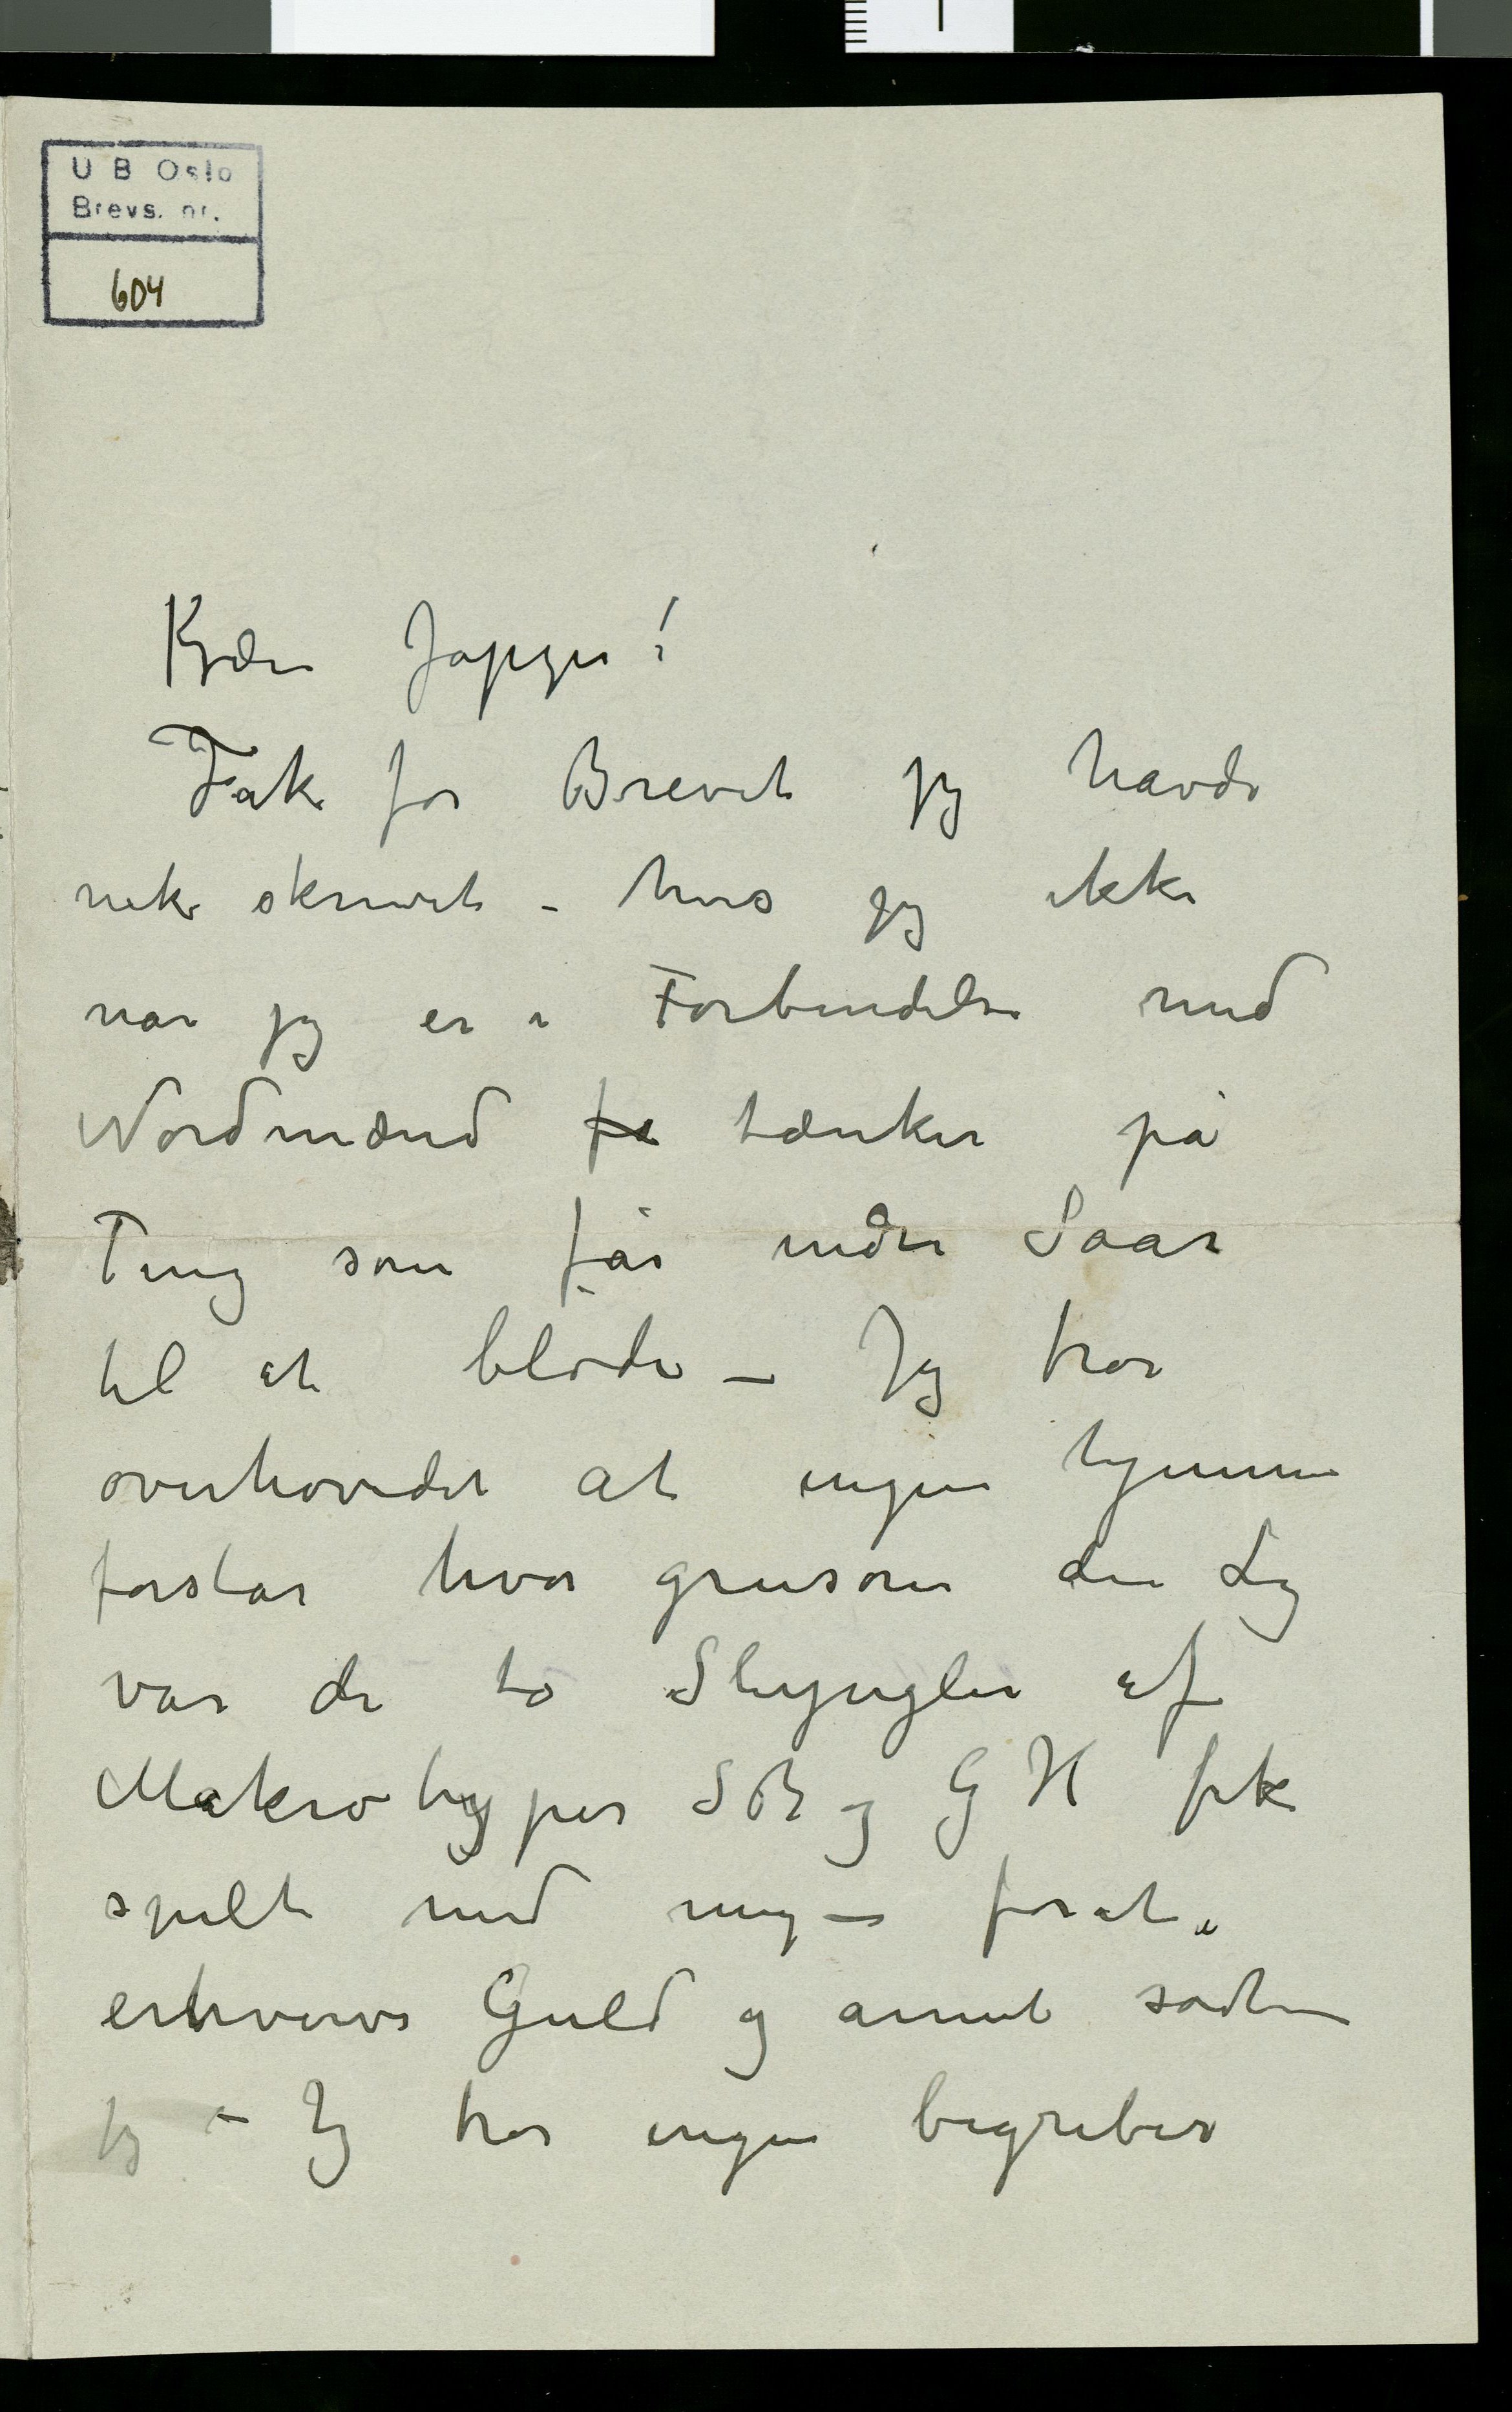 U B Oslo
Brevs. nr.
604
Kjære Jappe!
Tak for Brevet jeg havde
nok skrevet – hvis jeg ikke
når jeg er i Forbindelse med
Nordmænd få tænker på
Ting som får indre Saar
til at bløde – Jeg tror
overhovedet at ingen hjemme
forstår hvor grusom den Leg
var de to Slyngler af
Makrotyper SB og GH fik
spilt med mig – forat
erhverve Guld og annet sådan
Jeg – Jeg tror ingen begriber